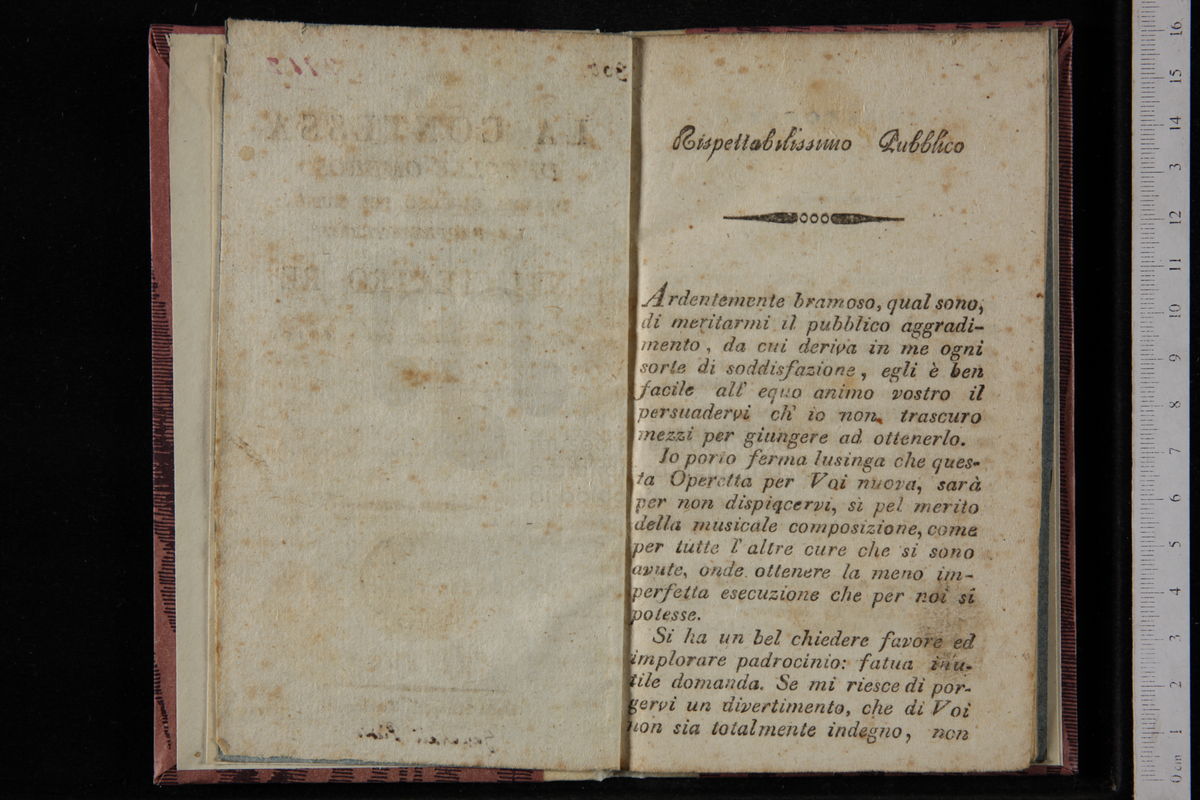 Rispettabilissimo Pubblico
Ardentemente bramoso, qual sono,
di meritarmi il pubblico aggradi-
mento, da cui deriva in me ogni
sorte di soddisfazione, egli è ben
facile all' equo animo vostro il
persuadervi ch' io non trascuro
mezzi per giungere ad ottenerlo.
Io porto ferma lusinga che ques-
ta Operetta per Voi nuova, sarà
per non dispiacervi, sì pel merito
della musicale composizione, come
per tutte l' altre cure che si sono
avute, onde ottenere la meno im-
perfetta esecuzione che per noi si
potesse.
Si ha un bel chiedere favore ed
implorare padrocinio: fatua inu-
tile domanda. Se mi riesce di por-
gervi un divertimento, che di Voi
non sia totalmente indegno, non